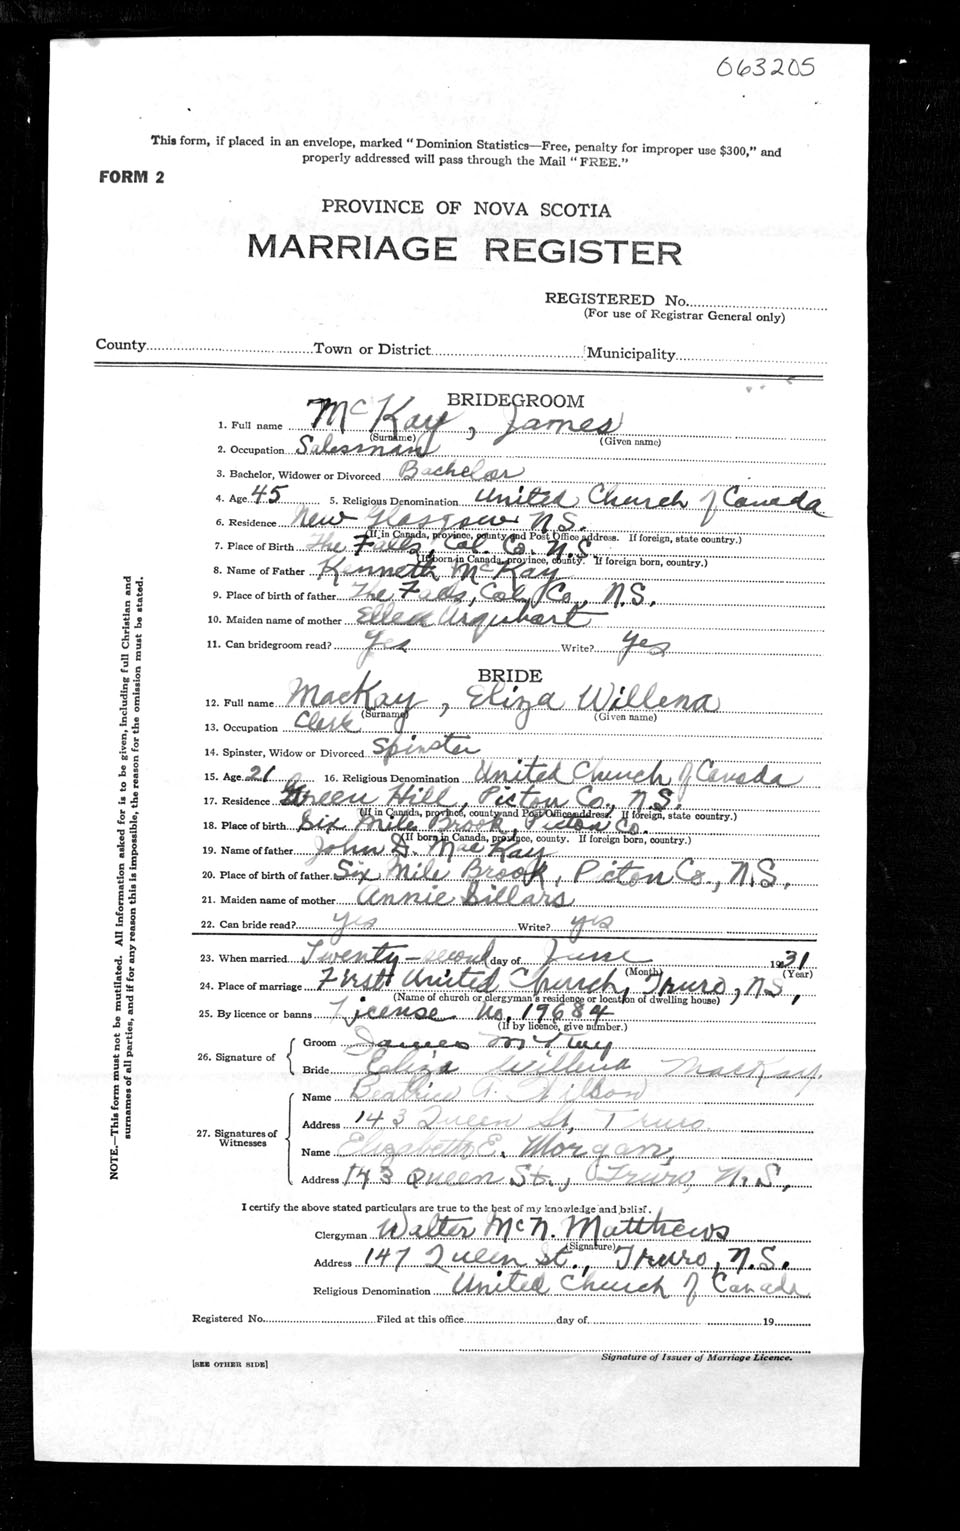 063205
This form, if placed in an envelope, marked "Dominion Statistics—Free, penalty for improper use $300," and
properly addressed will pass through the Mail "FREE."
FORM 2
PROVINCE OF NOVA SCOTIA
MARRIAGE REGISTER
REGISTERED No.
(For use of Registrar General only)
County Town or District Municipality
BRIDEGROOM
1. Full name McKay, James
(Surname) (Given name)
2. Occupation Salesman
3. Bachelor, Widower or Divorced Bachelor
4. Age 45 5. Religious Denomination United Church of Canada
6. Residence New Glasgow N.S.
(If in Canada, province, county and Post Office address. If foreign, state country.)
7. Place of Birth The Falls, Col. Co. N.S.
(If born in Canada, province, county. If foreign born, country.)
8. Name of Father Kenneth McKay
9. Place of birth of father The Falls, Col. Co., N.S.
10. Maiden name of mother Ellen Urquhart
11. Can bridegroom read? Yes Write? Yes
BRIDE
12. Full name MacKay, Eliza Willena
(Surname) (Given name)
13. Occupation Clerk
14. Spinster, Widow or Divorced Spinster
15. Age 21 16. Religious Denomination United Church of Canada
17. Residence Green Hill, Pictou Co., N.S.
(If in Canada, province, county and Post Office address. If foreign, state country.)
18. Place of birth Six Mile Brook, Pictou Co.
(If born in Canada, province, county. If foreign born, country.)
19. Name of father John G. MacKay
20. Place of birth of father Six Mile Brook, Pictou Co., N.S.
21. Maiden name of mother Annie Sillars
22. Can bride read? yes Write? yes
23. When married Twenty-second day of June 1931
(Month) (Year)
24. Place of marriage First United Church, Truro, N.S.,
(Name of church or clergyman's residence or location of dwelling house)
25. By licence or banns License No. 19684
(If by licence, give number.)
26. Signature of
Groom James McKay
Bride Eliza Willena MacKay
27. Signatures of Witnesses
Name Beatrice A. Wilson
Address 143 Queen St, Truro
Name Elizabeth E. Morgan,
Address 143 Queen St., Truro, N.S.,
I certify the above stated particulars are true to the best of my knowledge and belief.
Clergyman Walter McN. Matthews
(Signature)
Address 147 Queen St., Truro, N.S.
Religious Denomination United Church of Canada
Registered No. Filed at this office day of 19
Signature of Issuer of Marriage Licence.
[SEE OTHER SIDE]
NOTE.—This form must not be mutilated. All information asked for is to be given, including full Christian and
surnames of all parties, and if for any reason this is impossible, the reason for the omission must be stated.